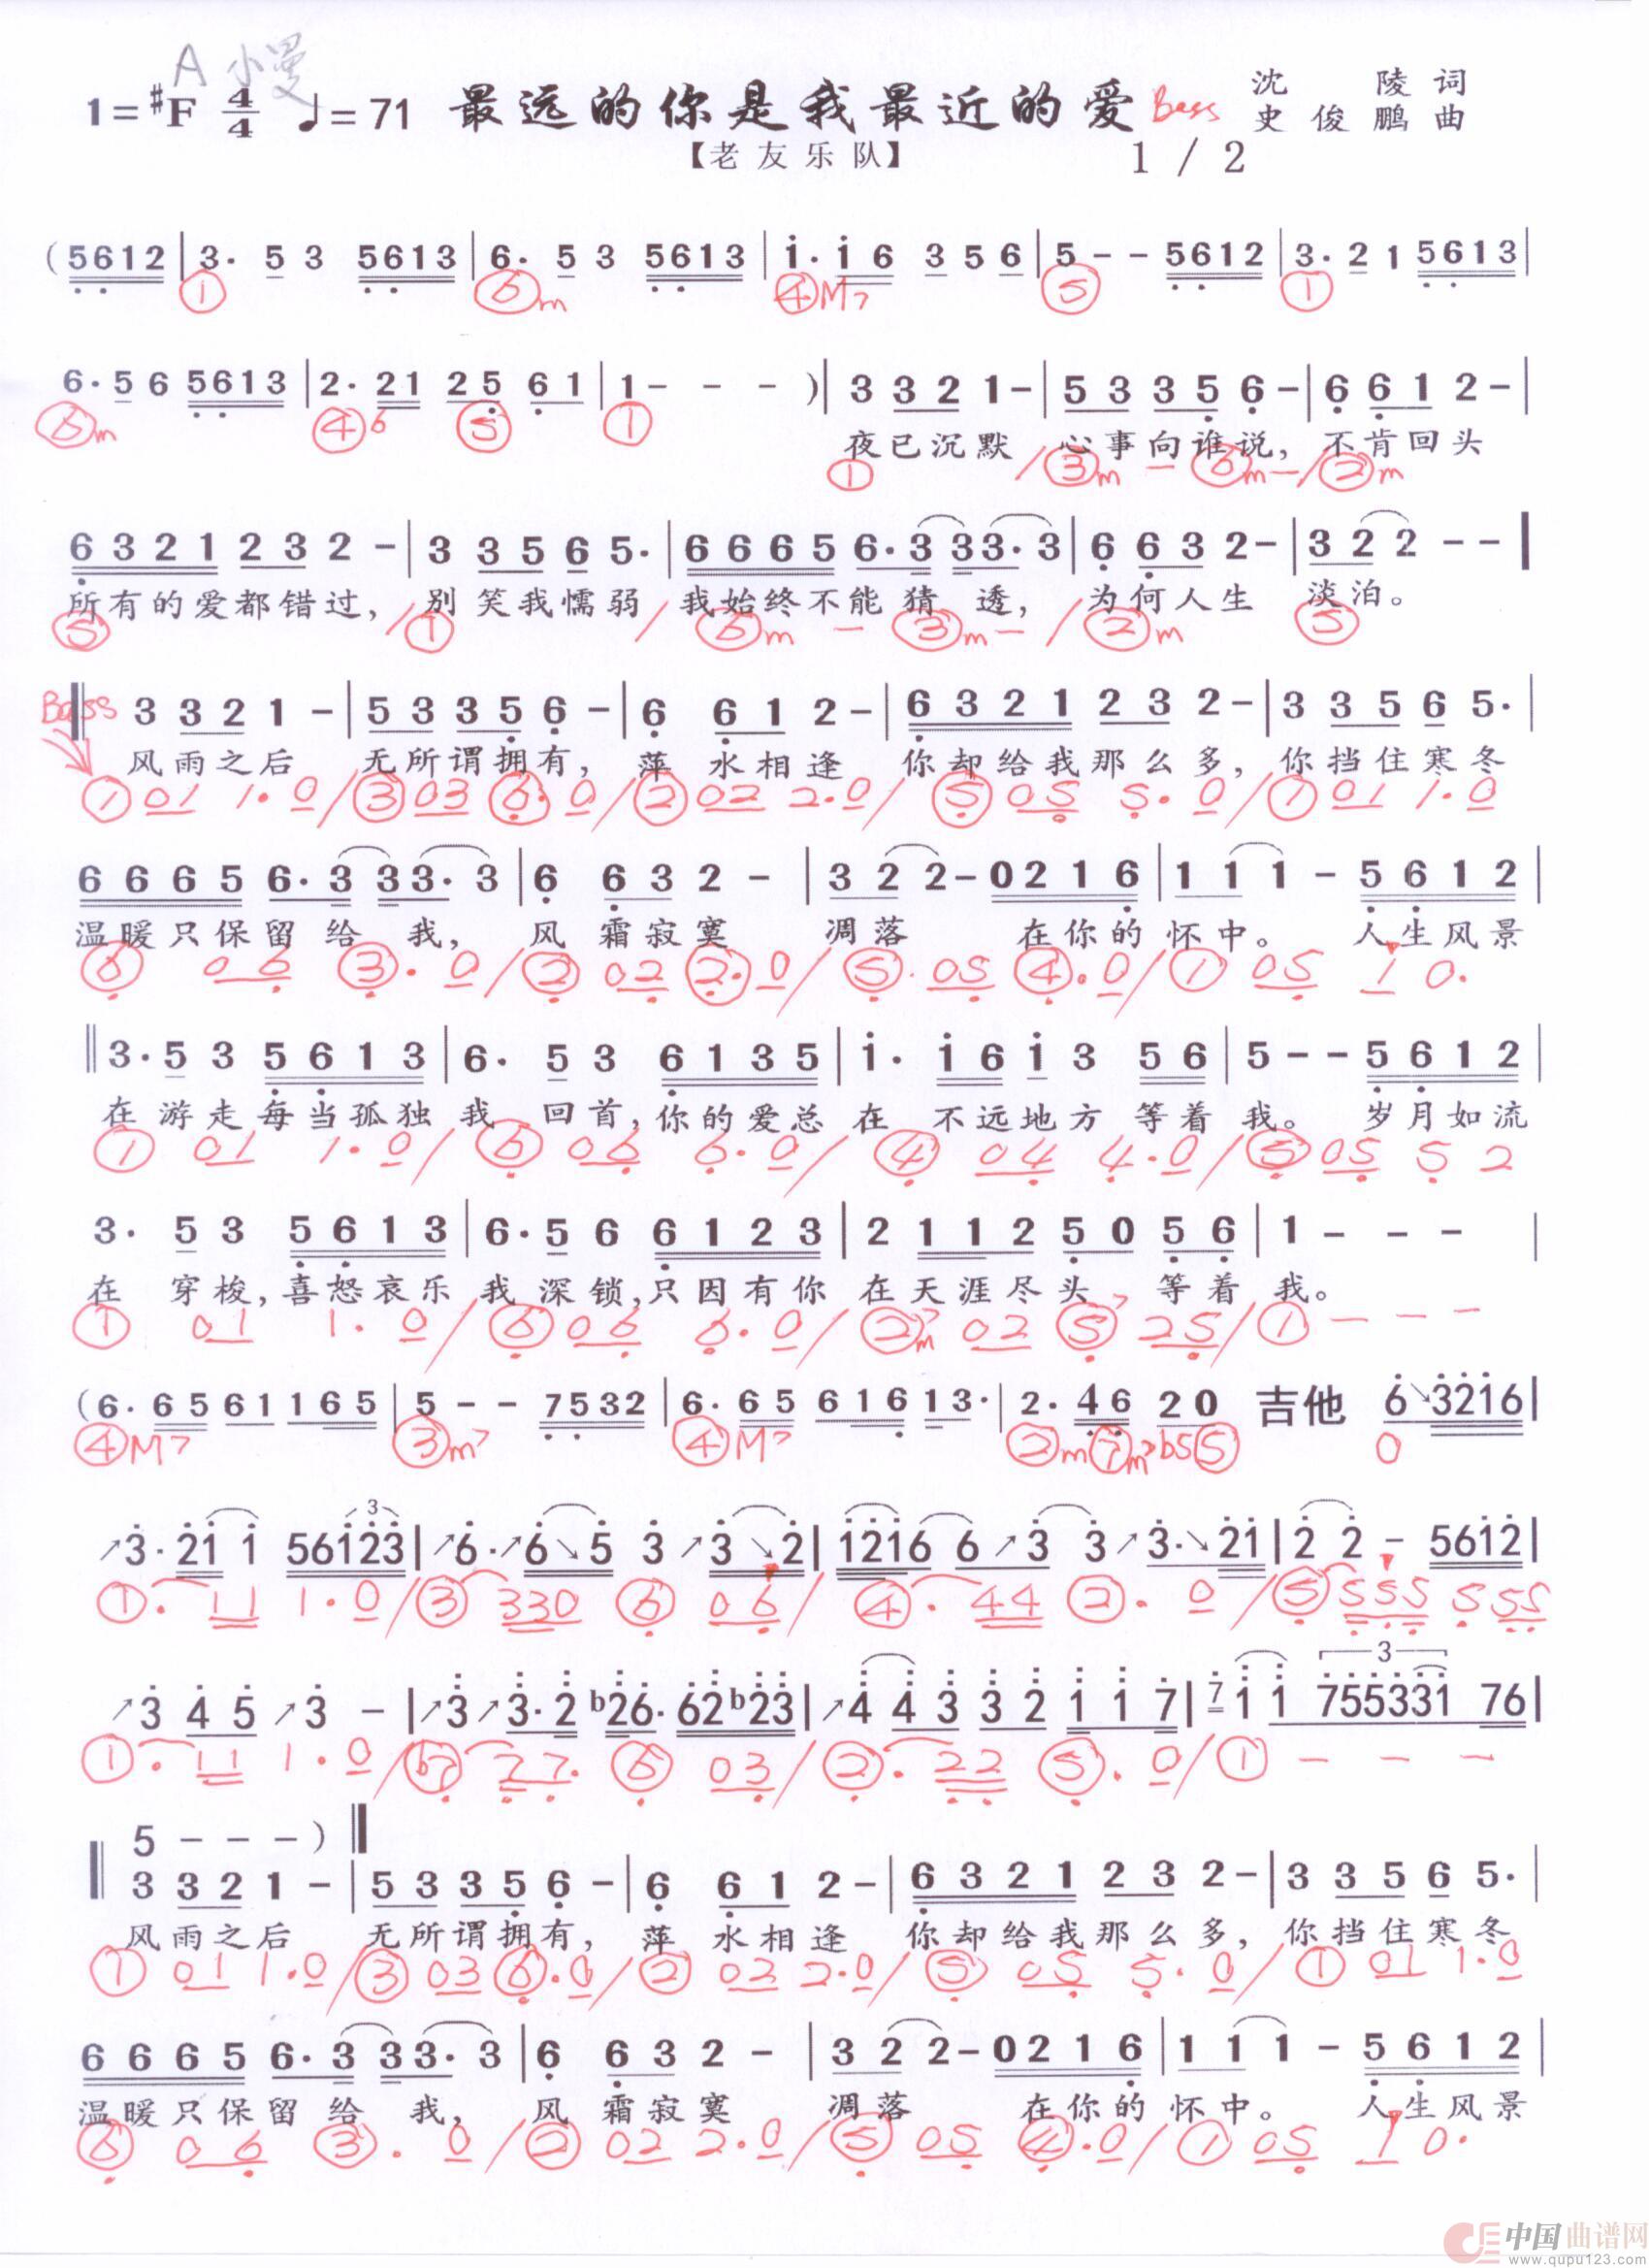 A 小曼
1=#F 4/4 ♩=71 最远的你是我最近的爱 Bass 沈 陵 词
【老友乐队】 1 / 2 史俊鹏 曲
(5612|3· 5 3 5613|6· 5 3 5613|i·i 6 3 5 6|5 - - 5612|3· 2 1 5613|
① ⑥m ④M7 ⑤ ①
6·5 6 5613|2·21 25 61|1- - - )|3 321 1-|53 35 6-|6 61 2-|
⑥m ④6 ⑤ ①
夜已沉默 心事向谁说, 不肯回头
① / ③m - ⑥m - / ②m
6321 23 2 -|3 35 6 5·|6665 6·3 33·3|6 63 2-|32 2 --‖
所有的爱都错过, 别笑我懦弱 我始终不能猜透, 为何人生 淡泊。
⑤ / ① / ⑥m - ③m - / ②m ⑤
Bass
‖3 32 1 -|53 35 6 -|6 61 2-|6321 23 2-|3 35 6 5·|
风雨之后 无所谓拥有, 萍水相逢 你却给我那么多, 你挡住寒冬
① 01 1·0/③ 03 ⑥·0/② 02 2·0/⑤ 05 5·0/① 01 1·0
6665 6·3 33·3|6 63 2 -|32 2-0216|11 1 - 5612|
温暖只保留给我, 风霜寂寞 凋落 在你的怀中。 人生风景
⑥ 06 ③·0/② 02 ②·0/⑤· 05 ④·0/① 05 1 0·
‖3·5 3 5613|6· 5 3 6135|i· i6 i 3 56|5 - - 5612|
在游走每当孤独我 回首, 你的爱总在 不远地方等着我。 岁月如流
① 01 1·0/⑥ 06 6·0/④ 04 4·0/⑤ 05 5 2
3· 5 3 5613|6·5 6 6123|2 112 50 56|1 - - -|
在 穿梭, 喜怒哀乐我深锁, 只因有你在天涯尽头 等着我。
① 01 1·0/⑥ 06 6·0/②m7 02 ⑤7 25/① - - -
(6· 65 61 165|5 - - 7532|6· 65 616 13·|2· 46 20 吉他 6↘3216|
④M7 ③m7 ④M7 ②m ⑦m7b5 ⑤ 0
↗3·21 1 56123|↗6·↗6↘5 3↗3↘2|1216 6↗3 3↗3·↘21|2 2 - 5612|
①· 11 1·0/③ 330 ⑥ 06/④· 44 ②·0/⑤ 555 5 55
↗3 45↗3 -|↗3↗3·2 b26· 62b23|↗4 43 32 1 1 7|7 1 1 755331 76|
①· 11 1·0/b⑦ 77· ⑥ 03/②· 22 ⑤·0/① - - -
5 - - -)‖
‖3 32 1 -|53 35 6 -|6 61 2-|6321 23 2-|3 35 6 5·|
风雨之后 无所谓拥有, 萍水相逢 你却给我那么多, 你挡住寒冬
① 01 1·0/③ 03 ⑥·0/② 02 2·0/⑤ 05 5·0/① 01 1·0
6665 6·3 33·3|6 63 2 -|32 2-0216|11 1 - 5612|
温暖只保留给我, 风霜寂寞 凋落 在你的怀中。 人生风景
⑥ 06 ③·0/② 02 2·0/⑤ 05 ④·0/① 05 1 0·
中国曲谱网
www.qupu123.com